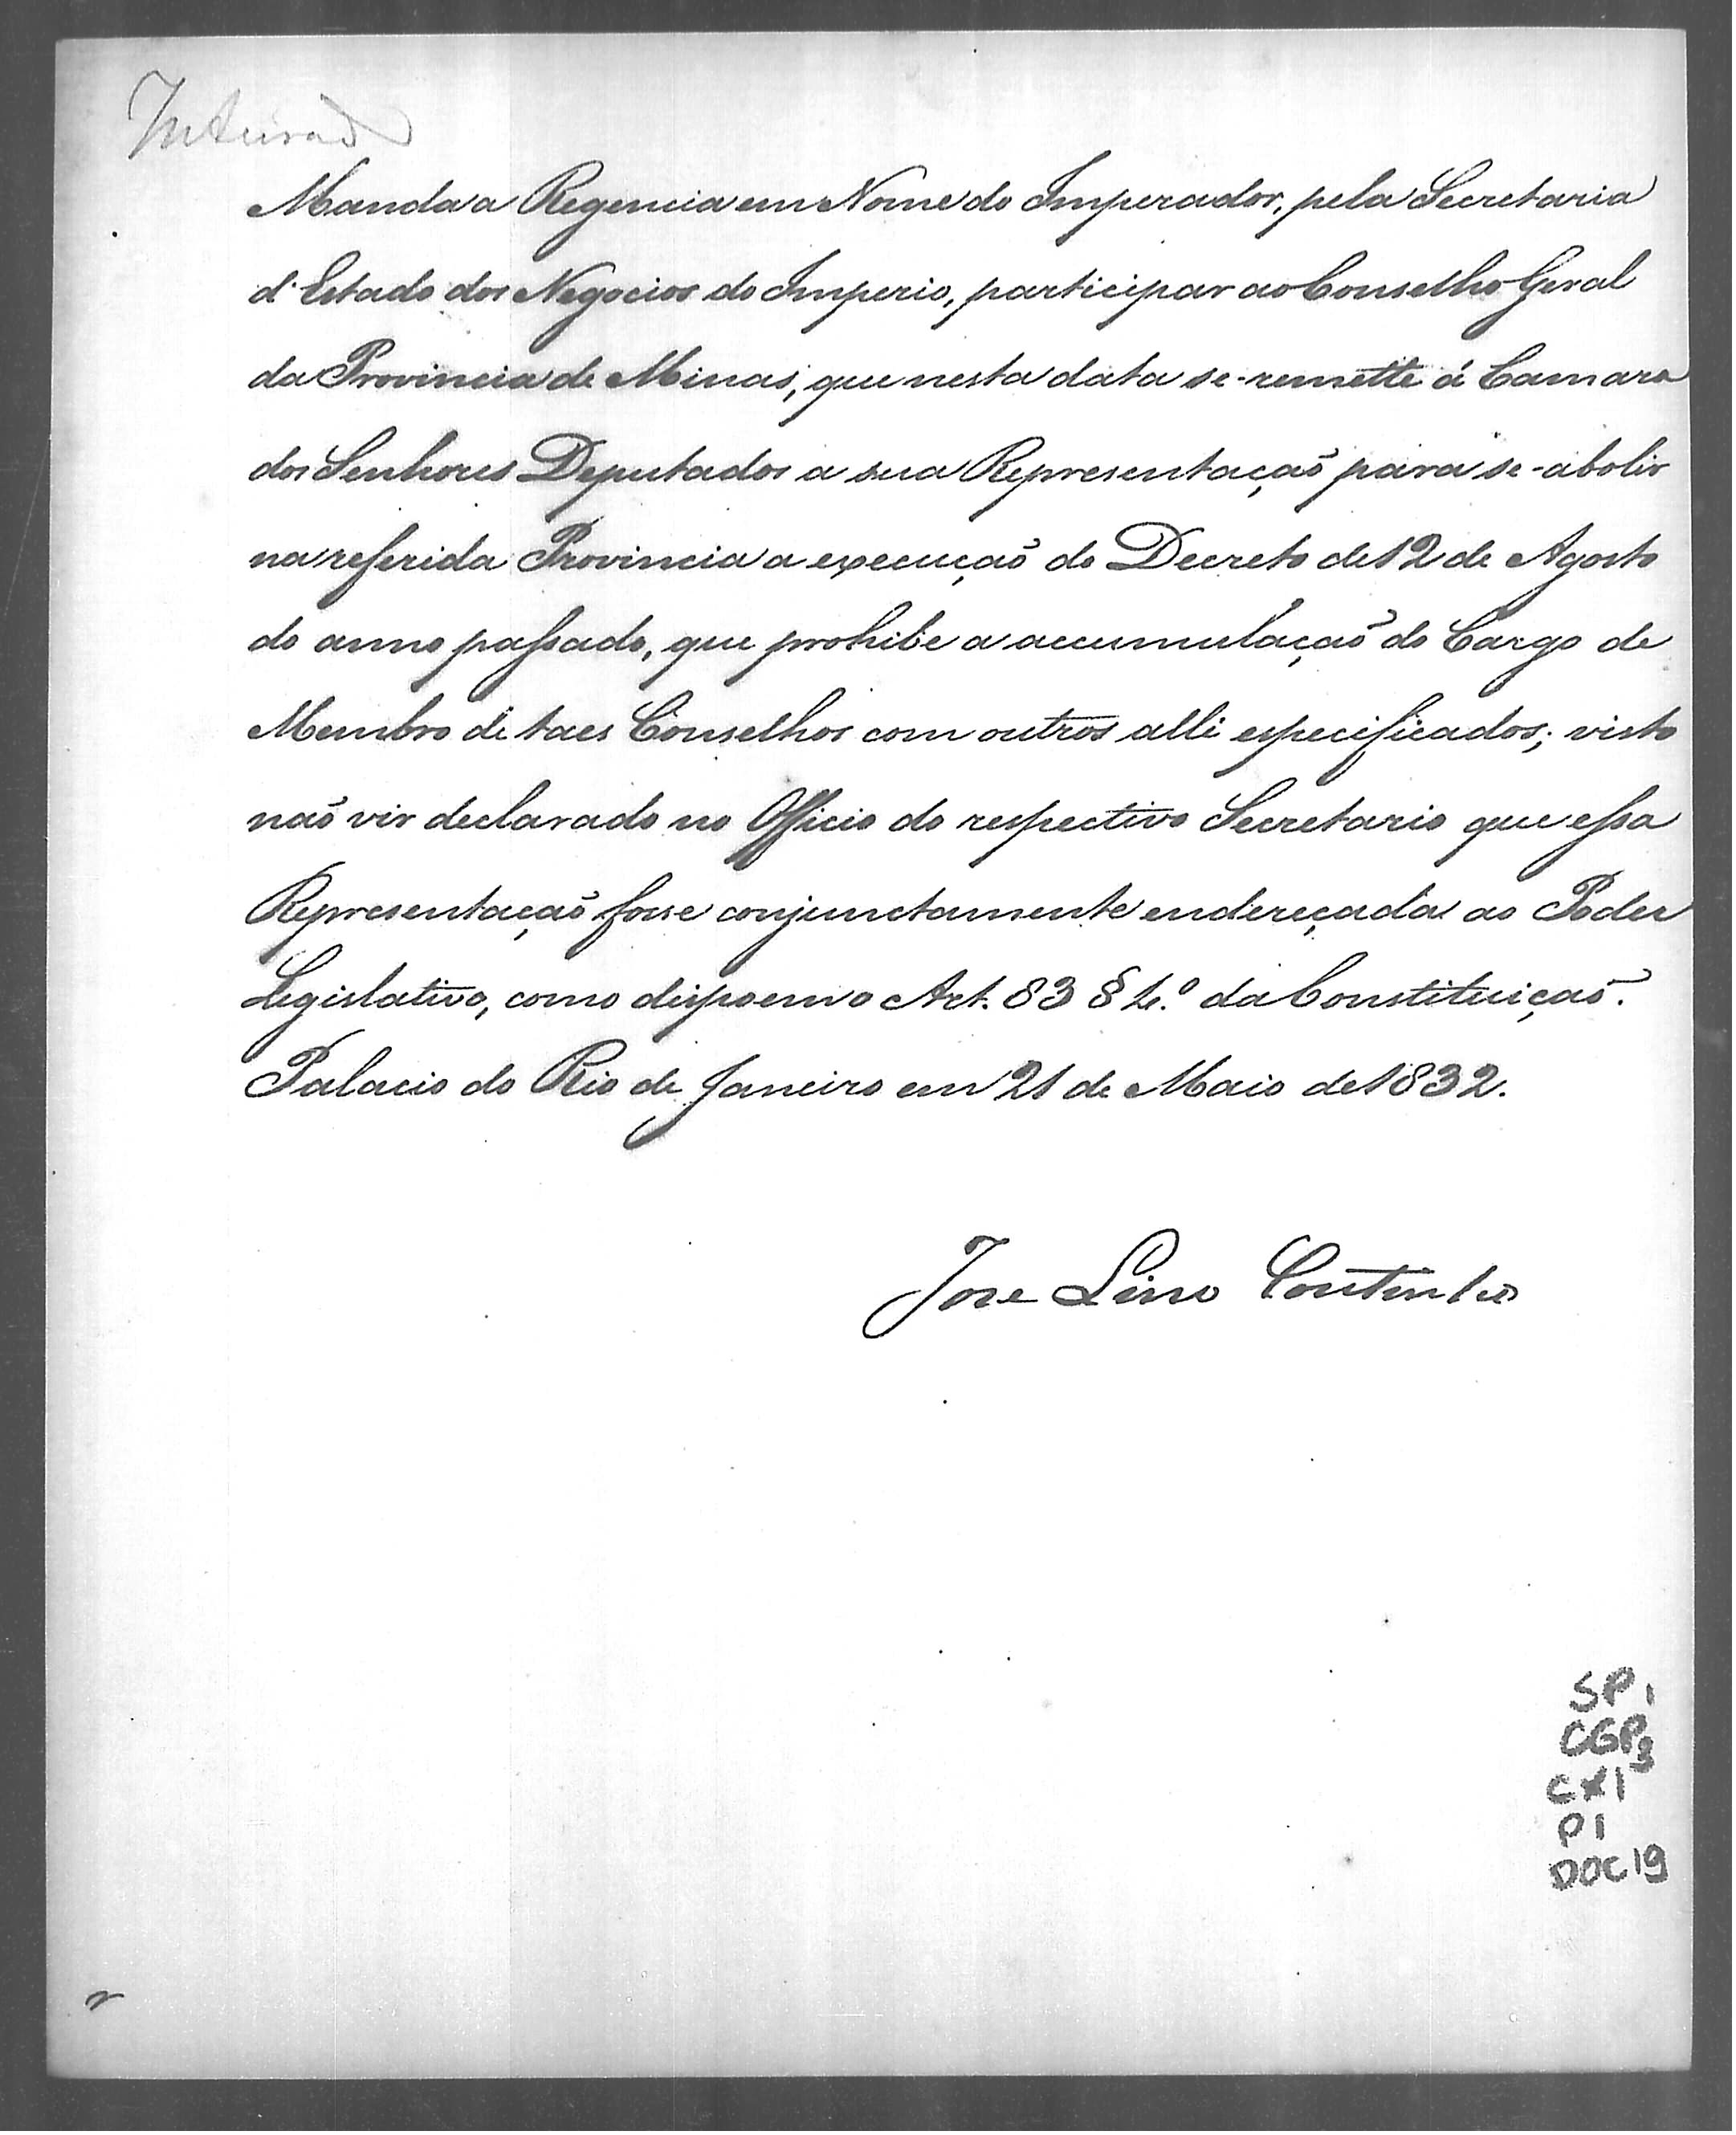 Inteirado
Manda a Regencia em Nome do Imperador, pela Secretaria
d'Estado dos Negocios do Imperio, participar ao Conselho Geral
da Provincia de Minas, que nesta data se-remette á Camara
dos Senhores Deputados a sua Representação para se-abolir
na referida Provincia a execução do Decreto de 12 de Agosto
do anno passado, que prohibe a accumulação do Cargo de
Membro de taes Conselhos com outros alli especificados; visto
não vir declarado no Officio do respectivo Secretario que essa
Representação fosse conjunctamente endereçada ao Poder
Legislativo, como dispoem o Art. 83 § 4.º da Constituição.
Palacio do Rio de Janeiro em 21 de Maio de 1832.
Jose Lino Coutinho
SP1
CGP3
CX1
P1
DOC19